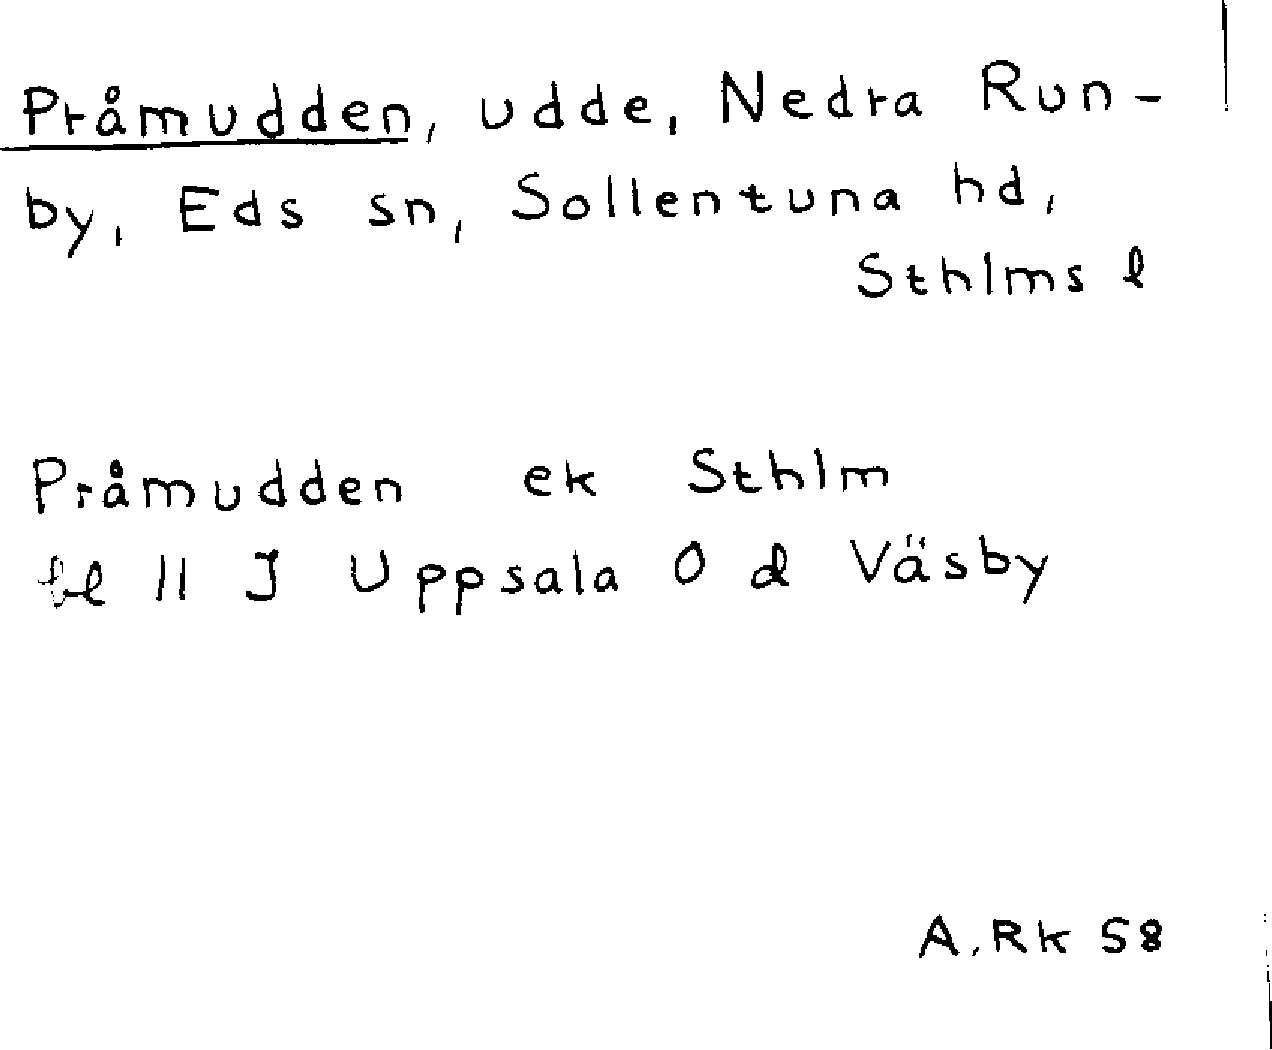 Pråmudden, udde, Nedra Run-
by, Eds sn, Sollentuna hd,
Sthlms l
Pråmudden ek Sthlm
bl 11 J Uppsala O d Väsby
A.Rk 58